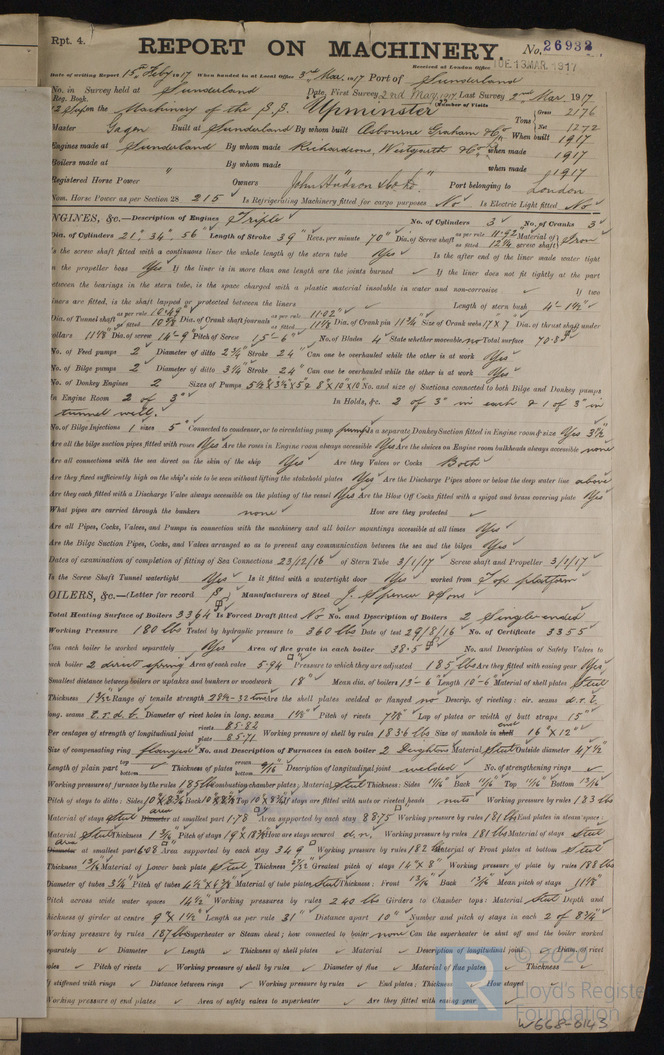 Rpt. 4.
REPORT ON MACHINERY. No. 26932
Received at London Office TUE. 13. MAR. 1917
Date of writing Report 15th Feby 1917 When handed in at Local Office 3rd Mar. 1917 Port of Sunderland
No. in Survey held at Sunderland Date, First Survey 2nd Last Survey 2nd Mar. 1917
Reg. Book. (Number of Visits
on the Machinery of the S.S. Upminster Tons { Gross 2176 Net 1272
Master Built at Sunderland By whom built Osbourne Graham & Co When built 1917
Engines made at Sunderland By whom made Richardsons, Westgarth & Co when made 1917
Boilers made at " By whom made " when made 1917
Registered Horse Power Owners John Hudson & Co Ld. Port belonging to London
Nom. Horse Power as per Section 28 215 Is Refrigerating Machinery fitted for cargo purposes No Is Electric Light fitted No
ENGINES, &c.—Description of Engines Triple No. of Cylinders 3 No. of Cranks 3
Dia. of Cylinders 21" 34" 56" Length of Stroke 39" Revs. per minute 70 Dia. of Screw shaft as per rule 11.92 as fitted 12 1/4 Material of screw shaft Iron
Is the screw shaft fitted with a continuous liner the whole length of the stern tube Yes Is the after end of the liner made water tight
in the propeller boss Yes If the liner is in more than one length are the joints burned If the liner does not fit tightly at the part
between the bearings in the stern tube, is the space charged with a plastic material insoluble in water and non-corrosive If two
liners are fitted, is the shaft lapped or protected between the liners Length of stern bush 4'-1 1/2"
Dia. of Tunnel shaft as per rule 10.49" as fitted 10 5/8 Dia. of Crank shaft journals as per rule 11.02" as fitted 11 1/8 Dia. of Crank pin 11 3/4 Size of Crank webs 17 x 7 Dia. of thrust shaft under
collars 11 1/8" Dia. of screw 14'-9" Pitch of Screw 15'-6" No. of Blades 4 State whether moveable no Total surface 70.8
No. of Feed pumps 2 Diameter of ditto 2 3/4" Stroke 24" Can one be overhauled while the other is at work Yes
No. of Bilge pumps 2 Diameter of ditto 3 1/4" Stroke 24" Can one be overhauled while the other is at work Yes
No. of Donkey Engines 2 Sizes of Pumps 5 1/4 x 3 1/2 x 5 & 8 x 10 x 10 No. and size of Suctions connected to both Bilge and Donkey pumps
In Engine Room 2 of 3" In Holds, &c. 2 of 3" in each & 1 of 3" in
tunnel well.
No. of Bilge Injections 1 sizes 5" Connected to condenser, or to circulating pump pump Is a separate Donkey Suction fitted in Engine room & size Yes 3 1/2
Are all the bilge suction pipes fitted with roses Yes Are the roses in Engine room always accessible Yes Are the sluices on Engine room bulkheads always accessible none
Are all connections with the sea direct on the skin of the ship Yes Are they Valves or Cocks Both
Are they fixed sufficiently high on the ship's side to be seen without lifting the stokehold plates Yes Are the Discharge Pipes above or below the deep water line above
Are they each fitted with a Discharge Valve always accessible on the plating of the vessel Yes Are the Blow Off Cocks fitted with a spigot and brass covering plate Yes
What pipes are carried through the bunkers none How are they protected
Are all Pipes, Cocks, Valves, and Pumps in connection with the machinery and all boiler mountings accessible at all times Yes
Are the Bilge Suction Pipes, Cocks, and Valves arranged so as to prevent any communication between the sea and the bilges Yes
Dates of examination of completion of fitting of Sea Connections 23/12/16 of Stern Tube 3/1/17 Screw shaft and Propeller 3/1/17
Is the Screw Shaft Tunnel watertight Yes Is it fitted with a watertight door Yes worked from Top platform
BOILERS, &c.—(Letter for record S) Manufacturers of Steel J. Spencer & Sons
Total Heating Surface of Boilers 3364 Is Forced Draft fitted No No. and Description of Boilers 2 Single ended
Working Pressure 180 lbs Tested by hydraulic pressure to 360 lbs Date of test 29/8/16 No. of Certificate 3355
Can each boiler be worked separately Yes Area of fire grate in each boiler 38.5 No. and Description of Safety Valves to
each boiler 2 direct spring Area of each valve 5.94 Pressure to which they are adjusted 185 lbs Are they fitted with easing gear Yes
Smallest distance between boilers or uptakes and bunkers or woodwork 18" Mean dia. of boilers 13'-6 Length 10'-6 Material of shell plates Steel
Thickness 1 3/32 Range of tensile strength 28 1/2-32 tons Are the shell plates welded or flanged no Descrip. of riveting: cir. seams d.r.l.
long. seams t.r.d.b. Diameter of rivet holes in long. seams 1 1/8" Pitch of rivets 7 7/8" Lap of plates or width of butt straps 15"
Per centages of strength of longitudinal joint rivets 85.82 plate 85.71 Working pressure of shell by rules 183.6 lbs Size of manhole in shell 16" x 12"
Size of compensating ring flanged No. and Description of Furnaces in each boiler 2 Deighton Material Steel Outside diameter 47 1/2"
Length of plain part top bottom Thickness of plates crown bottom 9/16 Description of longitudinal joint welded No. of strengthening rings
Working pressure of furnace by the rules 185 lbs Combustion chamber plates: Material Steel Thickness: Sides 11/16" Back 11/16" Top 11/16" Bottom 13/16"
Pitch of stays to ditto: Sides 10" x 8 3/4 Back 10 x 8 Top 10 x 8 3/4 If stays are fitted with nuts or riveted heads nuts Working pressure by rules 183 lbs
Material of stays Steel area Diameter at smallest part 1.78 Area supported by each stay 88.75 Working pressure by rules 181 lbs End plates in steam space:
Material Steel Thickness 1 3/16 Pitch of stays 19 x 18 How are stays secured d.n. Working pressure by rules 181 lbs Material of stays Steel
area Diameter at smallest part 6.08 Area supported by each stay 349 Working pressure by rules 182 lbs Material of Front plates at bottom Steel
Thickness 13/16 Material of Lower back plate Steel Thickness 27/32 Greatest pitch of stays 14" x 8" Working pressure of plate by rules 188 lbs
Diameter of tubes 3 1/4 Pitch of tubes 4 1/2 x 4 3/8 Material of tube plates Steel Thickness: Front 13/16 Back 13/16 Mean pitch of stays 11 1/8"
Pitch across wide water spaces 14 1/2" Working pressures by rules 240 lbs Girders to Chamber tops: Material Steel Depth and
thickness of girder at centre 9" x 1 1/2" Length as per rule 31" Distance apart 10" Number and pitch of stays in each 2 of 8 3/4"
Working pressure by rules 187 lbs Superheater or Steam chest; how connected to boiler none Can the superheater be shut off and the boiler worked
separately Diameter Length Thickness of shell plates Material Description of longitudinal joint Diam. of rivet
holes Pitch of rivets Working pressure of shell by rules Diameter of flue Material of flue plates Thickness
If stiffened with rings Distance between rings Working pressure by rules End plates; Thickness How stayed
Working pressure of end plates Area of safety valves to superheater Are they fitted with easing gear
© 2020
Lloyd's Register
Foundation
W668-0143